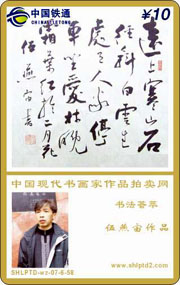 中国铁通
CHINA TIETONG
¥10
遠上寒山石
徑斜白雲生
處有人家停
車坐愛楓林晚
霜葉紅於二月花
伍燕宙書
中国现代书画家作品拍卖网
书法荟萃
伍燕宙作品
www.shlptd2.com
SHLPTD-wz-07-6-58